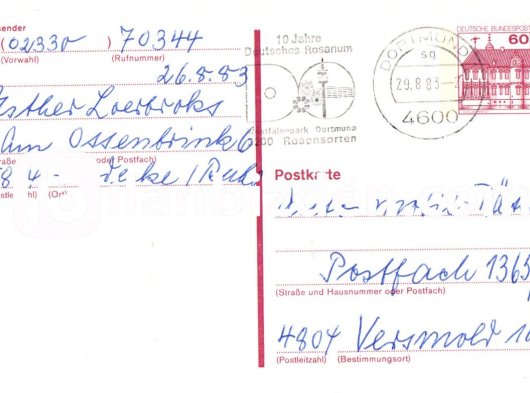 sender
(02330) 70344
(Vorwahl) (Rufnummer)
26.8.83
Esther Loerbroks
Am Ossenbrink 6
Straße (oder Postfach)
(Ort)
10 Jahre
Deutsches Rosarium
Westfalenpark Dortmund
3200 Rosensorten
DORTMUND
sg
29.8.83
4600
60
DEUTSCHE BUNDESPOST
Postkarte
Postfach 1365
(Straße und Hausnummer oder Postfach)
4804 Versmold 1
(Postleitzahl) (Bestimmungsort)